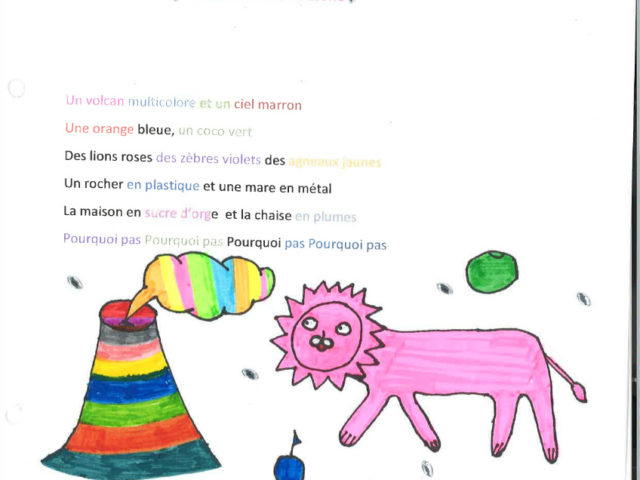 Un volcan multicolore et un ciel marron
Une orange bleue, un coco vert
Des lions roses des zèbres violets des agneaux jaunes
Un rocher en plastique et une mare en métal
La maison en sucre d'orge et la chaise en plumes
Pourquoi pas Pourquoi pas Pourquoi pas Pourquoi pas